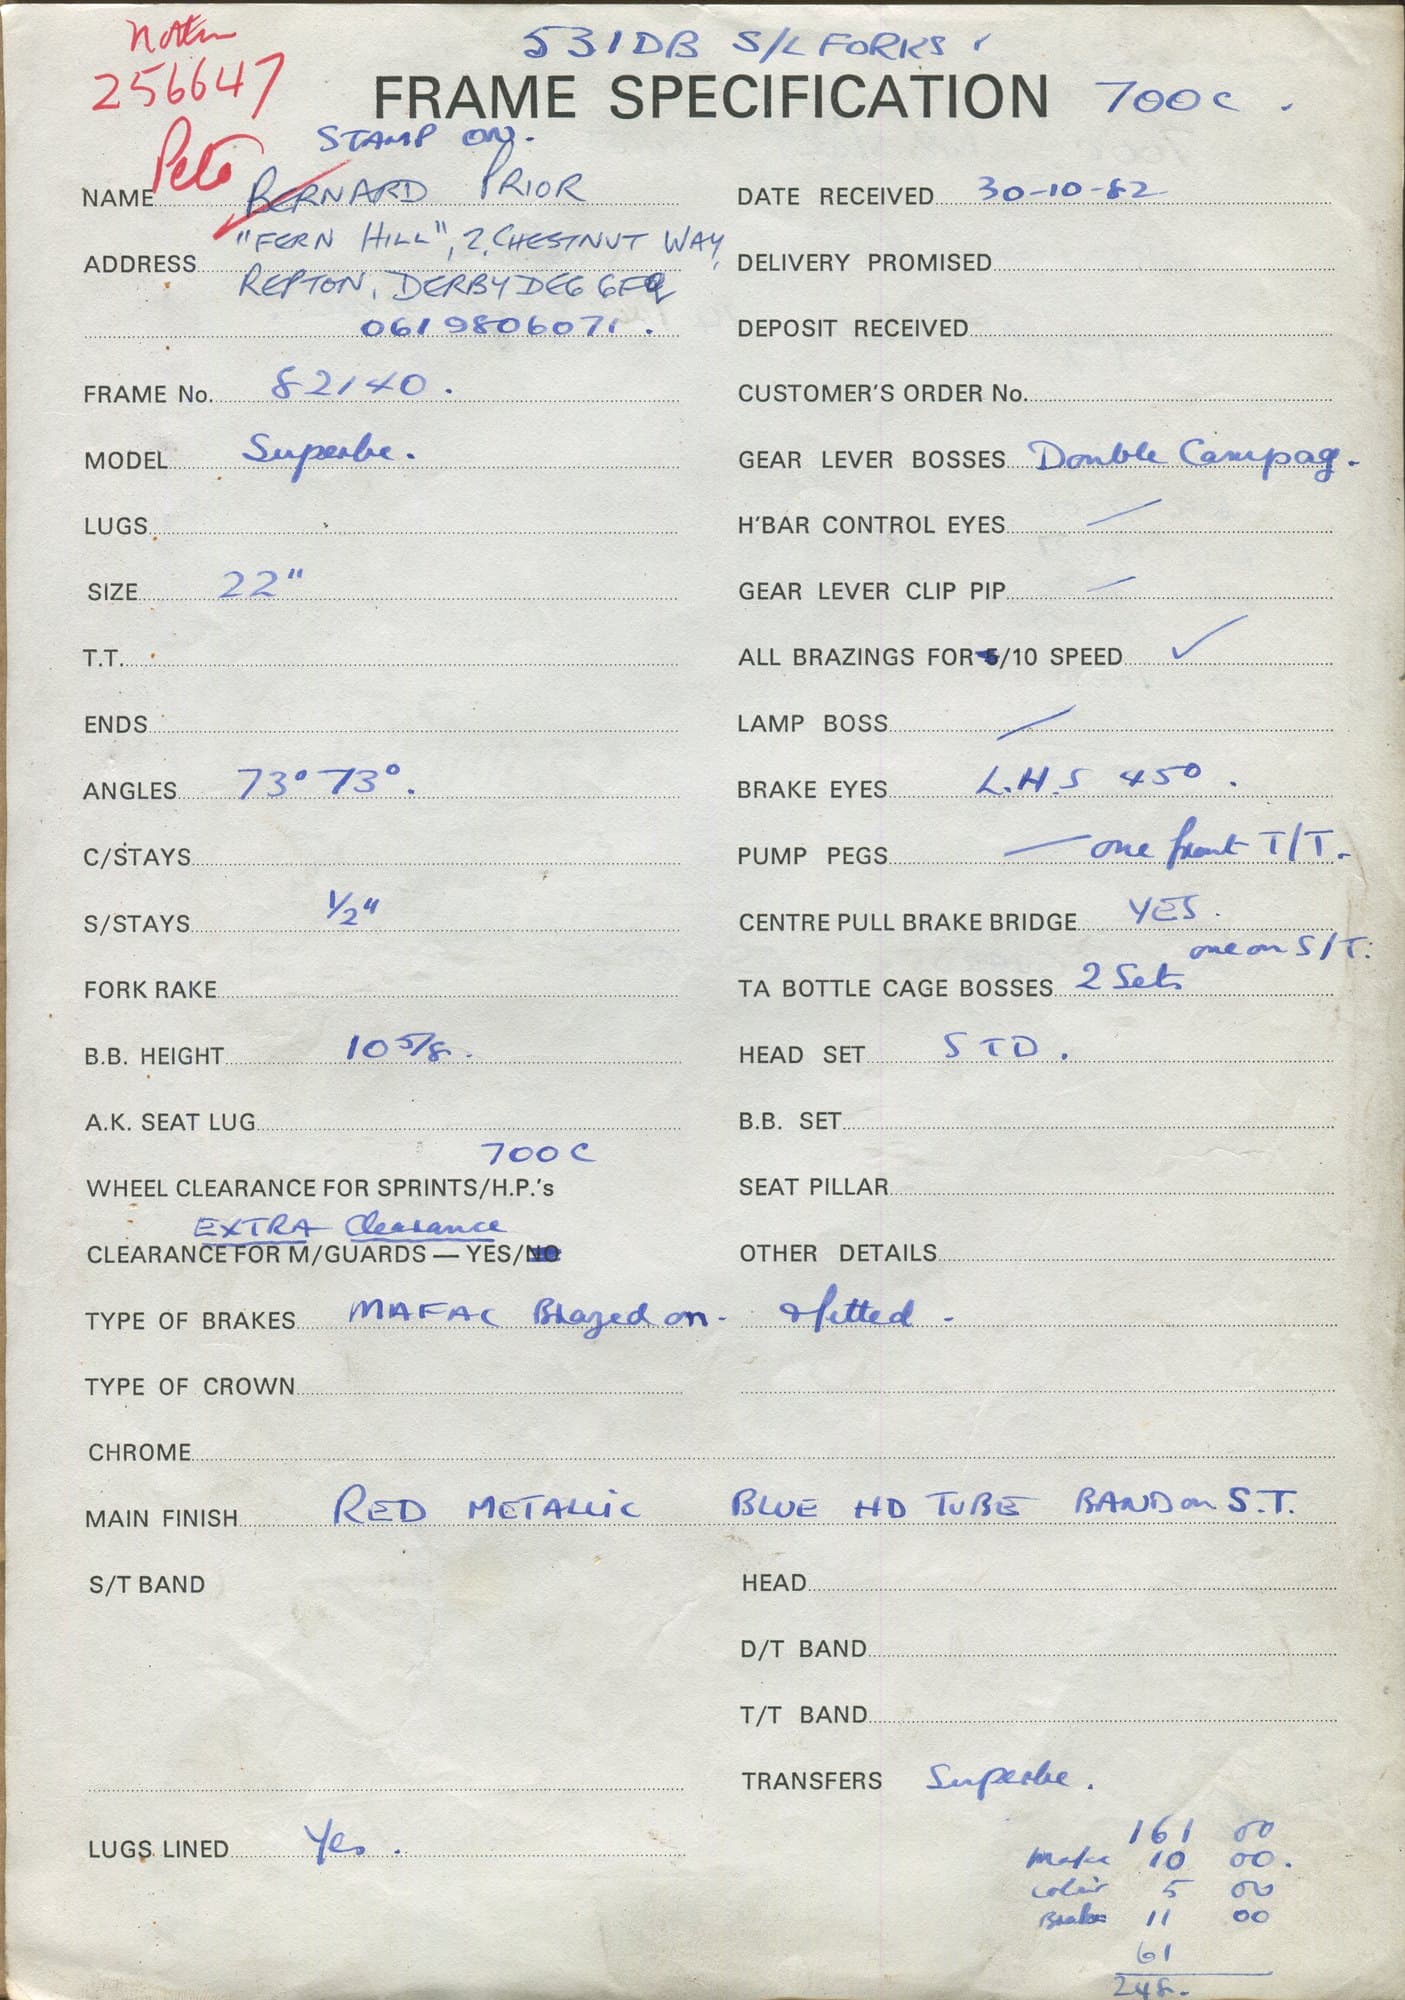 531DB S/L FORKS
256647
FRAME SPECIFICATION 700C.
STAMP ON.
Pete
NAME BERNARD PRIOR
ADDRESS "FERN HILL", 2, CHESTNUT WAY,
REPTON, DERBY DE6 6FQ
0619806071.
FRAME No. 82140.
MODEL Superbe.
LUGS
SIZE 22"
T.T.
ENDS
ANGLES 73° 73°.
C/STAYS
S/STAYS 1/2"
FORK RAKE
B.B. HEIGHT 10 5/8.
A.K. SEAT LUG
700C
WHEEL CLEARANCE FOR SPRINTS/H.P.'s
EXTRA Clearance
CLEARANCE FOR M/GUARDS — YES/NO
DATE RECEIVED 30-10-82
DELIVERY PROMISED
DEPOSIT RECEIVED
CUSTOMER'S ORDER No.
GEAR LEVER BOSSES Double Campag.
H'BAR CONTROL EYES —
GEAR LEVER CLIP PIP —
ALL BRAZINGS FOR 5/10 SPEED ✓
LAMP BOSS —
BRAKE EYES L.H.S 45°.
PUMP PEGS — one front T/T.
CENTRE PULL BRAKE BRIDGE YES.
one on S/T.
TA BOTTLE CAGE BOSSES 2 Sets
HEAD SET STD.
B.B. SET
SEAT PILLAR
OTHER DETAILS
TYPE OF BRAKES MAFAC Brazed on. & fitted.
TYPE OF CROWN
CHROME
MAIN FINISH RED METALLIC BLUE HD TUBE BAND on S.T.
S/T BAND
LUGS LINED Yes.
HEAD
D/T BAND
T/T BAND
TRANSFERS Superbe.
161 00
10 00.
5 00
Brakes 11 00
61
248.